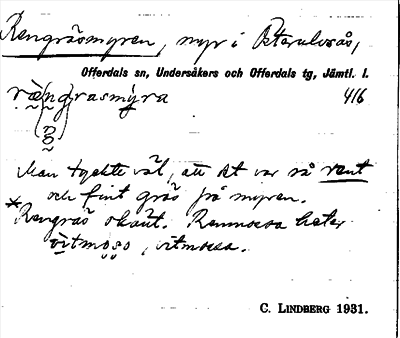 Rengräsmyren, myr i
Offerdals sn, Undersåkers och Offerdals tg, Jämtl. l.
ræ̀ngrasmýra 416
Man tyckte väl, att det var så rent
och fint gräs på myren.
*Rengräs okänt. Renmossa heter
vitmoso, vitmossa.
C. LINDBERG 1931.